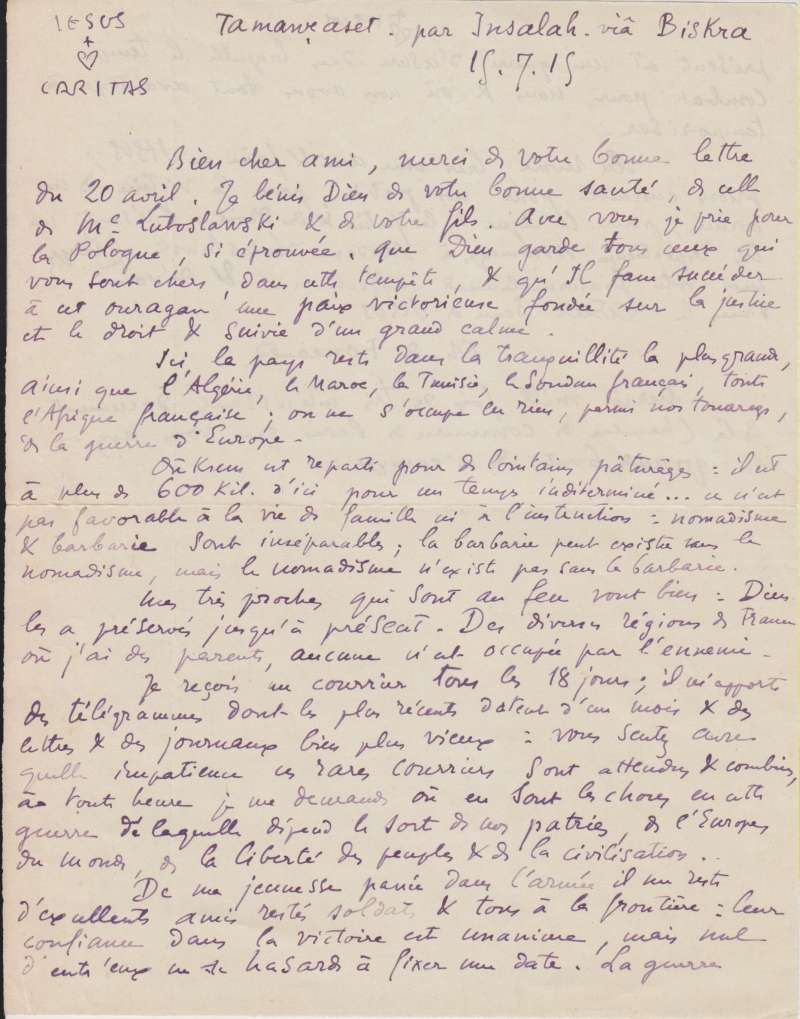 IESUS
+
♡
CARITAS
Tamanrasset . par Insalah . viâ Biskra
15.7.15
Bien cher ami, merci de votre bonne lettre
du 20 avril. Je bénis Dieu de votre bonne santé, de celle
de Me Lutoslawski & de votre fils. Avec vous je prie pour
la Pologne, si éprouvée. Que Dieu garde tous ceux qui
vous sont chers dans cette tempête, & qu'Il fasse succéder
à cet ouragan une paix victorieuse fondée sur la justice
et le droit & suivie d'un grand calme.
Ici le pays reste dans la tranquillité la plus grande,
ainsi que l'Algérie, le Maroc, la Tunisie, le Soudan français, toute
l'Afrique française ; on ne s'occupe en rien, parmi nos touaregs,
de la guerre d'Europe.
est reparti pour de lointains pâturages : il est
à plus de 600 kil. d'ici pour un temps indéterminé... ce n'est
pas favorable à la vie de famille ni à l'instruction : nomadisme
& barbarie sont inséparables ; la barbarie peut exister sans le
nomadisme, mais le nomadisme n'existe pas sans la barbarie.
Mes très proches qui sont au feu vont bien : Dieu
les a préservés jusqu'à présent. Des diverses régions de France
où j'ai des parents, aucune n'est occupée par l'ennemi.
Je reçois un courrier tous les 18 jours ; il m'apporte
des télégrammes dont les plus récents datent d'un mois & des
lettres & des journaux bien plus vieux : vous sentez avec
quelle impatience ces rares courriers sont attendus & combien,
à toute heure je me demande où en sont les choses en cette
guerre de laquelle dépend le sort de nos patries, de l'Europe
du monde, de la liberté des peuples & de la civilisation..
De ma jeunesse passée dans l'armée il me reste
d'excellents amis restés soldats & tous à la frontière : leur
confiance dans la victoire est unanime, mais nul
d'entr'eux ne se hasarde à fixer une date. La guerre